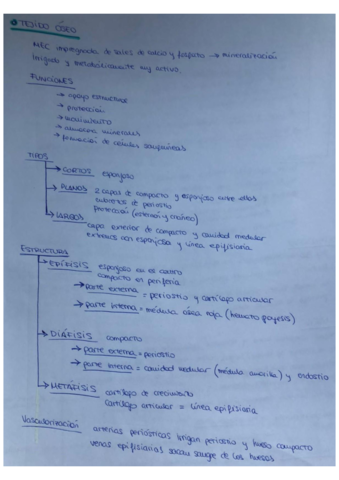 TEJIDO ÓSEO
MEC impregnada de sales de calcio y fosfato → mineralización
Irrigado y metabólicamente muy activo.
FUNCIONES
→ apoyo estructural
→ protección
→ movimiento
→ almacena minerales
→ formación de células sanguíneas
TIPOS
→ CORTOS esponjoso
→ PLANOS 2 capas de compacto y esponjoso entre ellas
cubiertos de periostio
protección (esternón y cráneo)
→ LARGOS
capa exterior de compacto y cavidad medular
extremos con esponjosa y línea epifisiaria
ESTRUCTURA
→ EPÍFISIS esponjoso en el centro
compacto en periferia
→ parte externa = periostio y cartílago articular
→ parte interna = médula ósea roja (hematopoyesis)
→ DIÁFISIS compacto
→ parte externa = periostio
→ parte interna = cavidad medular (médula amarilla) y endostio
→ METÁFISIS cartílago de crecimiento
cartílago articular = línea epifisiaria
Vascularización arterias periósticas irrigan periostio y hueso compacto
venas epifisiarias sacan sangre de los huesos